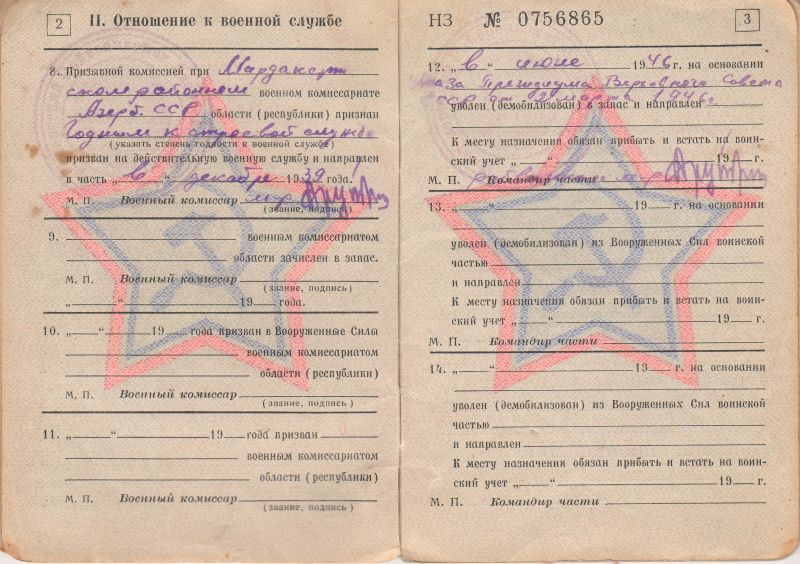 2
II. Отношение к военной службе
8. Призывной комиссией при Мардакерт
ском районном военном комиссариате
Азерб. ССР области (республики) признан
Годным к строевой службе
(указать степень годности к военной службе)
призван на действительную военную службу и направлен
в часть „ в “ декабре 1939 года.
М. П. Военный комиссар м-р
(звание, подпись)
9. военным комиссариатом
области зачислен в запас.
М. П. Военный комиссар
(звание, подпись)
„ “ 19 года.
10. „ “ 19 года призван в Вооруженные Силы
военным комиссариатом
области (республики)
М. П. Военный комиссар
(звание, подпись)
11. „ “ 19 года призван
военным комиссариатом
области (республики)
М. П. Военный комиссар
(звание, подпись)
НЗ № 0756865
3
12. „ в “ июне 1946 г. на основании
Указа Президиума Верховного Совета
СССР от 2 марта 1946 г.
уволен (демобилизован) в запас и направлен
К месту назначения обязан прибыть и встать на воин-
ский учет „ “ 19 г.
М. П. Командир части
13. „ “ 19 г. на основании
уволен (демобилизован) из Вооруженных Сил воинской
частью
и направлен
К месту назначения обязан прибыть и встать на воин-
ский учет „ “ 19 г.
М. П. Командир части
14. „ “ 19 г. на основании
уволен (демобилизован) из Вооруженных Сил воинской
частью
и направлен
К месту назначения обязан прибыть и встать на воин-
ский учет „ “ 19 г.
М. П. Командир части